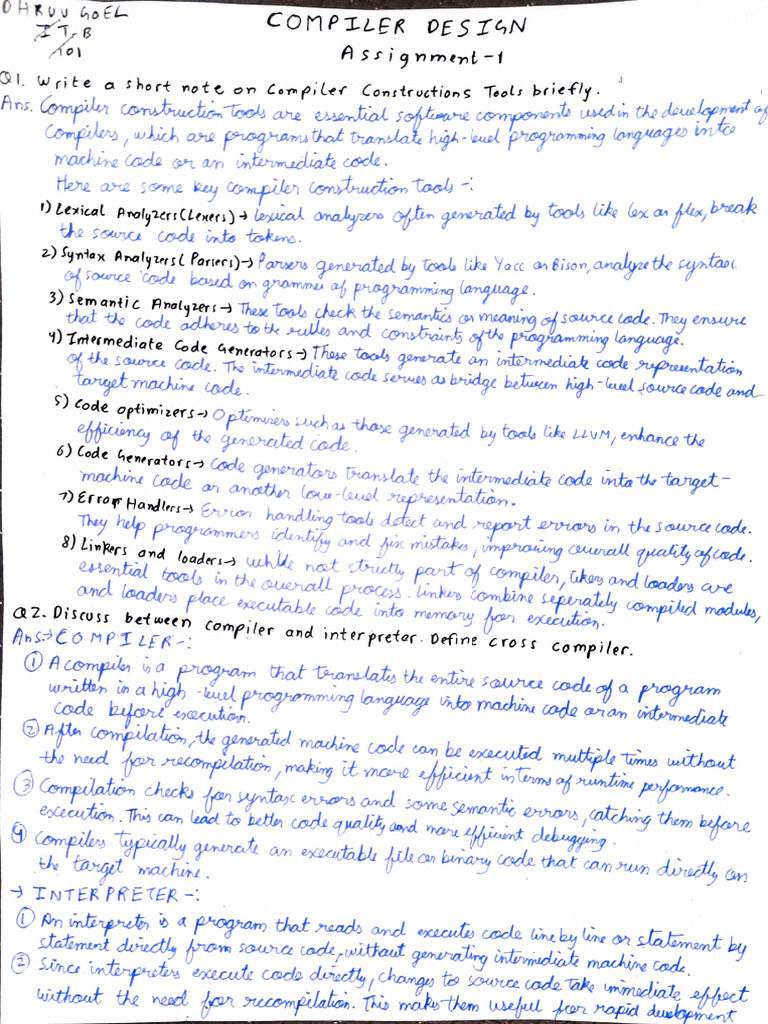 DHRUV GOEL
IT-B
101
COMPILER DESIGN
Assignment-1
Q1. Write a short note on Compiler Constructions Tools briefly.
Ans. Compiler construction Tools are essential software components used in the development of
Compilers, which are programs that translate high-level programming languages into
machine code or an intermediate code.
Here are some key compiler construction tools -:
1) Lexical Analyzers(Lexers) → Lexical analyzers often generated by tools like lex or flex, break
the source code into tokens.
2) Syntax Analyzers( Parsers)→ Parsers generated by tools like Yacc or Bison, analyze the syntax
of source code based on grammer of programming language.
3) Semantic Analyzers → These tools check the semantics or meaning of source code. They ensure
that the code adheres to the rules and constraints of the programming language.
4) Intermediate Code Generators → These tools generate an intermediate code representation
of the source code. The intermediate code serves as bridge between high-level source code and
target machine code.
5) Code optimizers → Optimizers such as those generated by tools like LLVM, enhance the
efficiency of the generated code.
6) Code Generators → Code generators translate the intermediate code into the target-
machine code or another low-level representation.
7) Error Handlers → Error handling tools detect and report errors in the source code.
They help programmers identify and fix mistakes, improving overall quality of code.
8) Linkers and loaders → While not strictly part of compiler, likers and loaders are
essential tools in the overall process. Linkers combine seperately compiled modules,
and loaders place executable code into memory for execution.
Q2. Discuss between compiler and interpreter. Define cross compiler.
Ans:→ COMPILER -:
① A compiler is a program that translates the entire source code of a program
written in a high-level programming language into machine code or an intermediate
code before execution.
② After compilation, the generated machine code can be executed multiple times without
the need for recompilation, making it more efficient in terms of runtime performance.
③ Compilation checks for syntax errors and some semantic errors, catching them before
execution. This can lead to better code quality and more efficient debugging.
④ Compilers typically generate an executable file or binary code that can run directly on
the target machine.
→ INTERPRETER -:
① An interpreter is a program that reads and executes code line by line or statement by
statement directly from source code, without generating intermediate machine code.
② Since interpreters execute code directly, changes to source code take immediate effect
without the need for recompilation. This makes them useful for rapid development